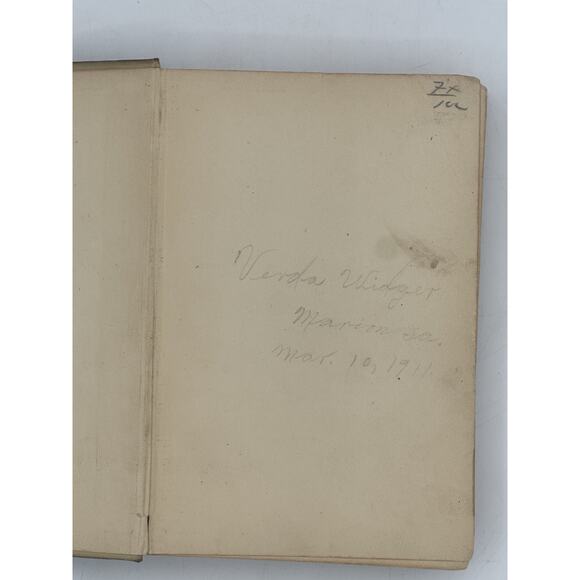 Verda Widger
Marion Ia.
Mar. 10, 1911.